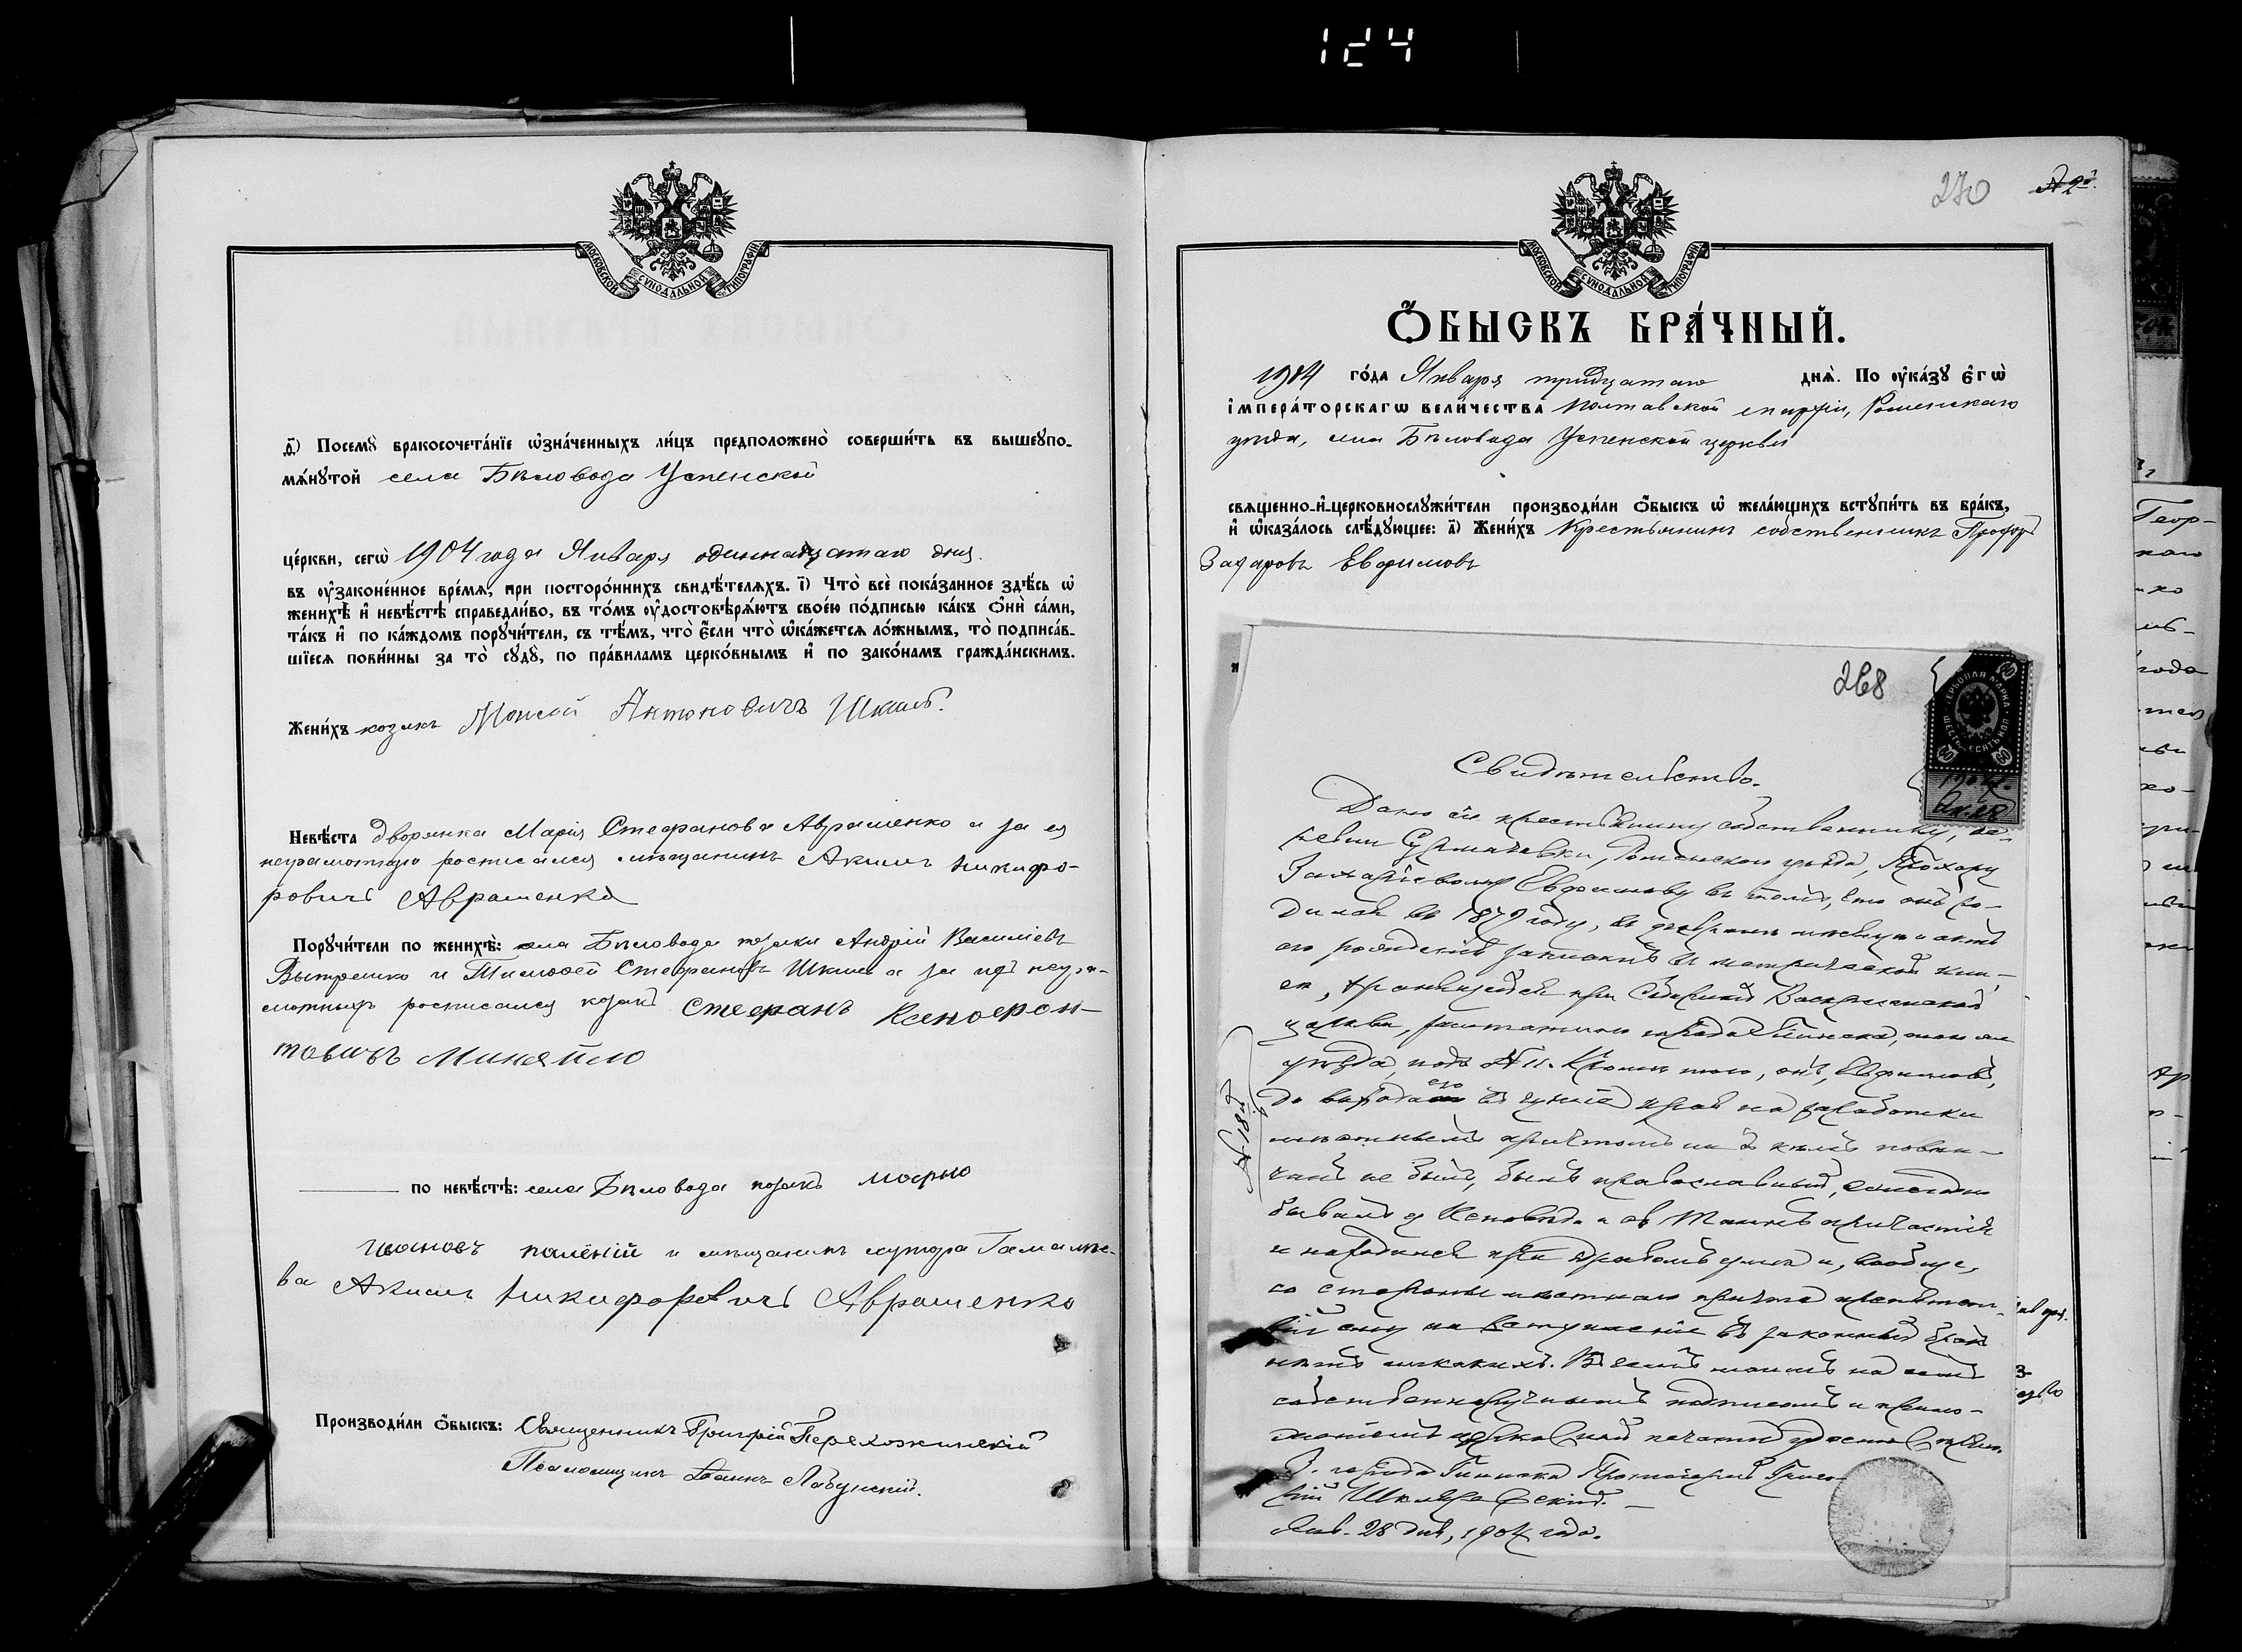 124
МОСКОВСКОЙ СУНОДАЛЬНОЙ ТИПОГРАФІИ
Ѳ҃) Посемꙋ̀ бракосочета́нїе ѡ҆зна́ченныхъ ли́цъ предположено̀ соверши́ть въ вышеꙋпо-
мѧ́нꙋтой села Бѣловода Успенской
це́ркви, сегѡ̀ 1904 года Января одиннадцатаго дня.
въ ᲂу҆зако́ненное вре́мѧ, при посторо́ннихъ свидѣ́телѧхъ. і҃) Что̀ всѐ пока́занное здѣ́сь ѡ҆
женихѣ̀ и҆ невѣ́стѣ справедли́во, въ то́мъ ᲂу҆достовѣрѧ́ютъ свое́ю по́дписью ка́къ ѻ҆нѝ са́ми,
та́къ и҆ по ка́ждомъ порꙋчи́тели, съ тѣ́мъ, что̀ є҆́сли что̀ ѡ҆ка́жетсѧ ло́жнымъ, то̀ подписа́в-
шїесѧ пови́нны за то̀ сꙋдꙋ̀, по пра́виламъ церко́внымъ и҆ по зако́намъ гражда́нскимъ.
Жени́хъ козакъ Моисей Антоновичъ Шкиль.
Невѣ́ста дворянка Марія Стефанова Авраменко а за ея
неграмотную росписался мѣщанинъ Акимъ Никифо-
ровичъ Авраменко
Порꙋчи́тели по женихѣ̀: села Бѣловода козаки Андрій Василіевъ
и Тимоѳей Стефановъ Шкиль а за ихъ негра-
мотныхъ росписался козакъ Стефанъ Ксенофон-
товичъ Миняйло
по невѣ́стѣ: села Бѣловода козакъ
Ивановъ и мѣщанинъ хутора Гамалѣе-
ва Акимъ Никифоровичъ Авраменко
Производи́ли ѻ҆́быскъ: Священникъ Григорій
Псаломщикъ Іоаннъ Лабунскій.
270
МОСКОВСКОЙ СУНОДАЛЬНОЙ ТИПОГРАФІИ
Ѻ҆́БЫСКЪ БРА́ЧНЫЙ.
1904 го́да Января тридцатаго днѧ̀. По ᲂу҆ка́зꙋ є҆гѡ̀
і҆мпера́торскагѡ вели́чества Полтавской епархіи, Роменскаго
уѣзда, села Бѣловода Успенской церкви
свѧщенно-и҆-церковнослꙋжи́тели производи́ли ѻ҆́быскъ ѡ҆ жела́ющихъ встꙋпи́ть въ бра́къ,
и҆ ѡ҆каза́лось слѣ́дꙋющее: а҃) Жени́хъ Крестьянинъ собственникъ Прохоръ
Захаровъ Евфимовъ
268
ГЕРБОВАЯ МАРКА ШЕСТЬДЕСЯТЪ КОП. 60
1904
Янв. 28
Свидѣтельство.
Дано сіе крестьянину собственнику, де-
ревни Роменскаго уѣзда, Прохору
Захаріевому Евфимову въ томъ, что онъ ро-
дился въ 1879 году, въ февралѣ мѣсяцѣ и актъ
его рожденія записанъ въ метрической кни-
гѣ, хранящейся при Соборной Воскресенской
церкви, города Глинска, того же
уѣзда, подъ № 11. Кромѣ того, онъ, Евфимовъ,
до выхода его въ чужіе края на заработки
мѣстнымъ причтомъ ни съ кѣмъ повѣн-
чанъ не былъ, былъ православный, ежегодно
бывалъ у Исповѣди и св. Таинъ причастія
и находился при здравомъ умѣ и, вообще,
со стороны мѣстнаго причта препятст-
вій ему на вступленіе въ законный бракъ
нѣтъ никакихъ. Въ чемъ моимъ на семъ
собственноручнымъ подписомъ и прило-
женіемъ церковной печати удостовѣряю.
города Глинска Протоіерей Григо-
рій
Янв. 28 дня, 1904 года.
№ 18